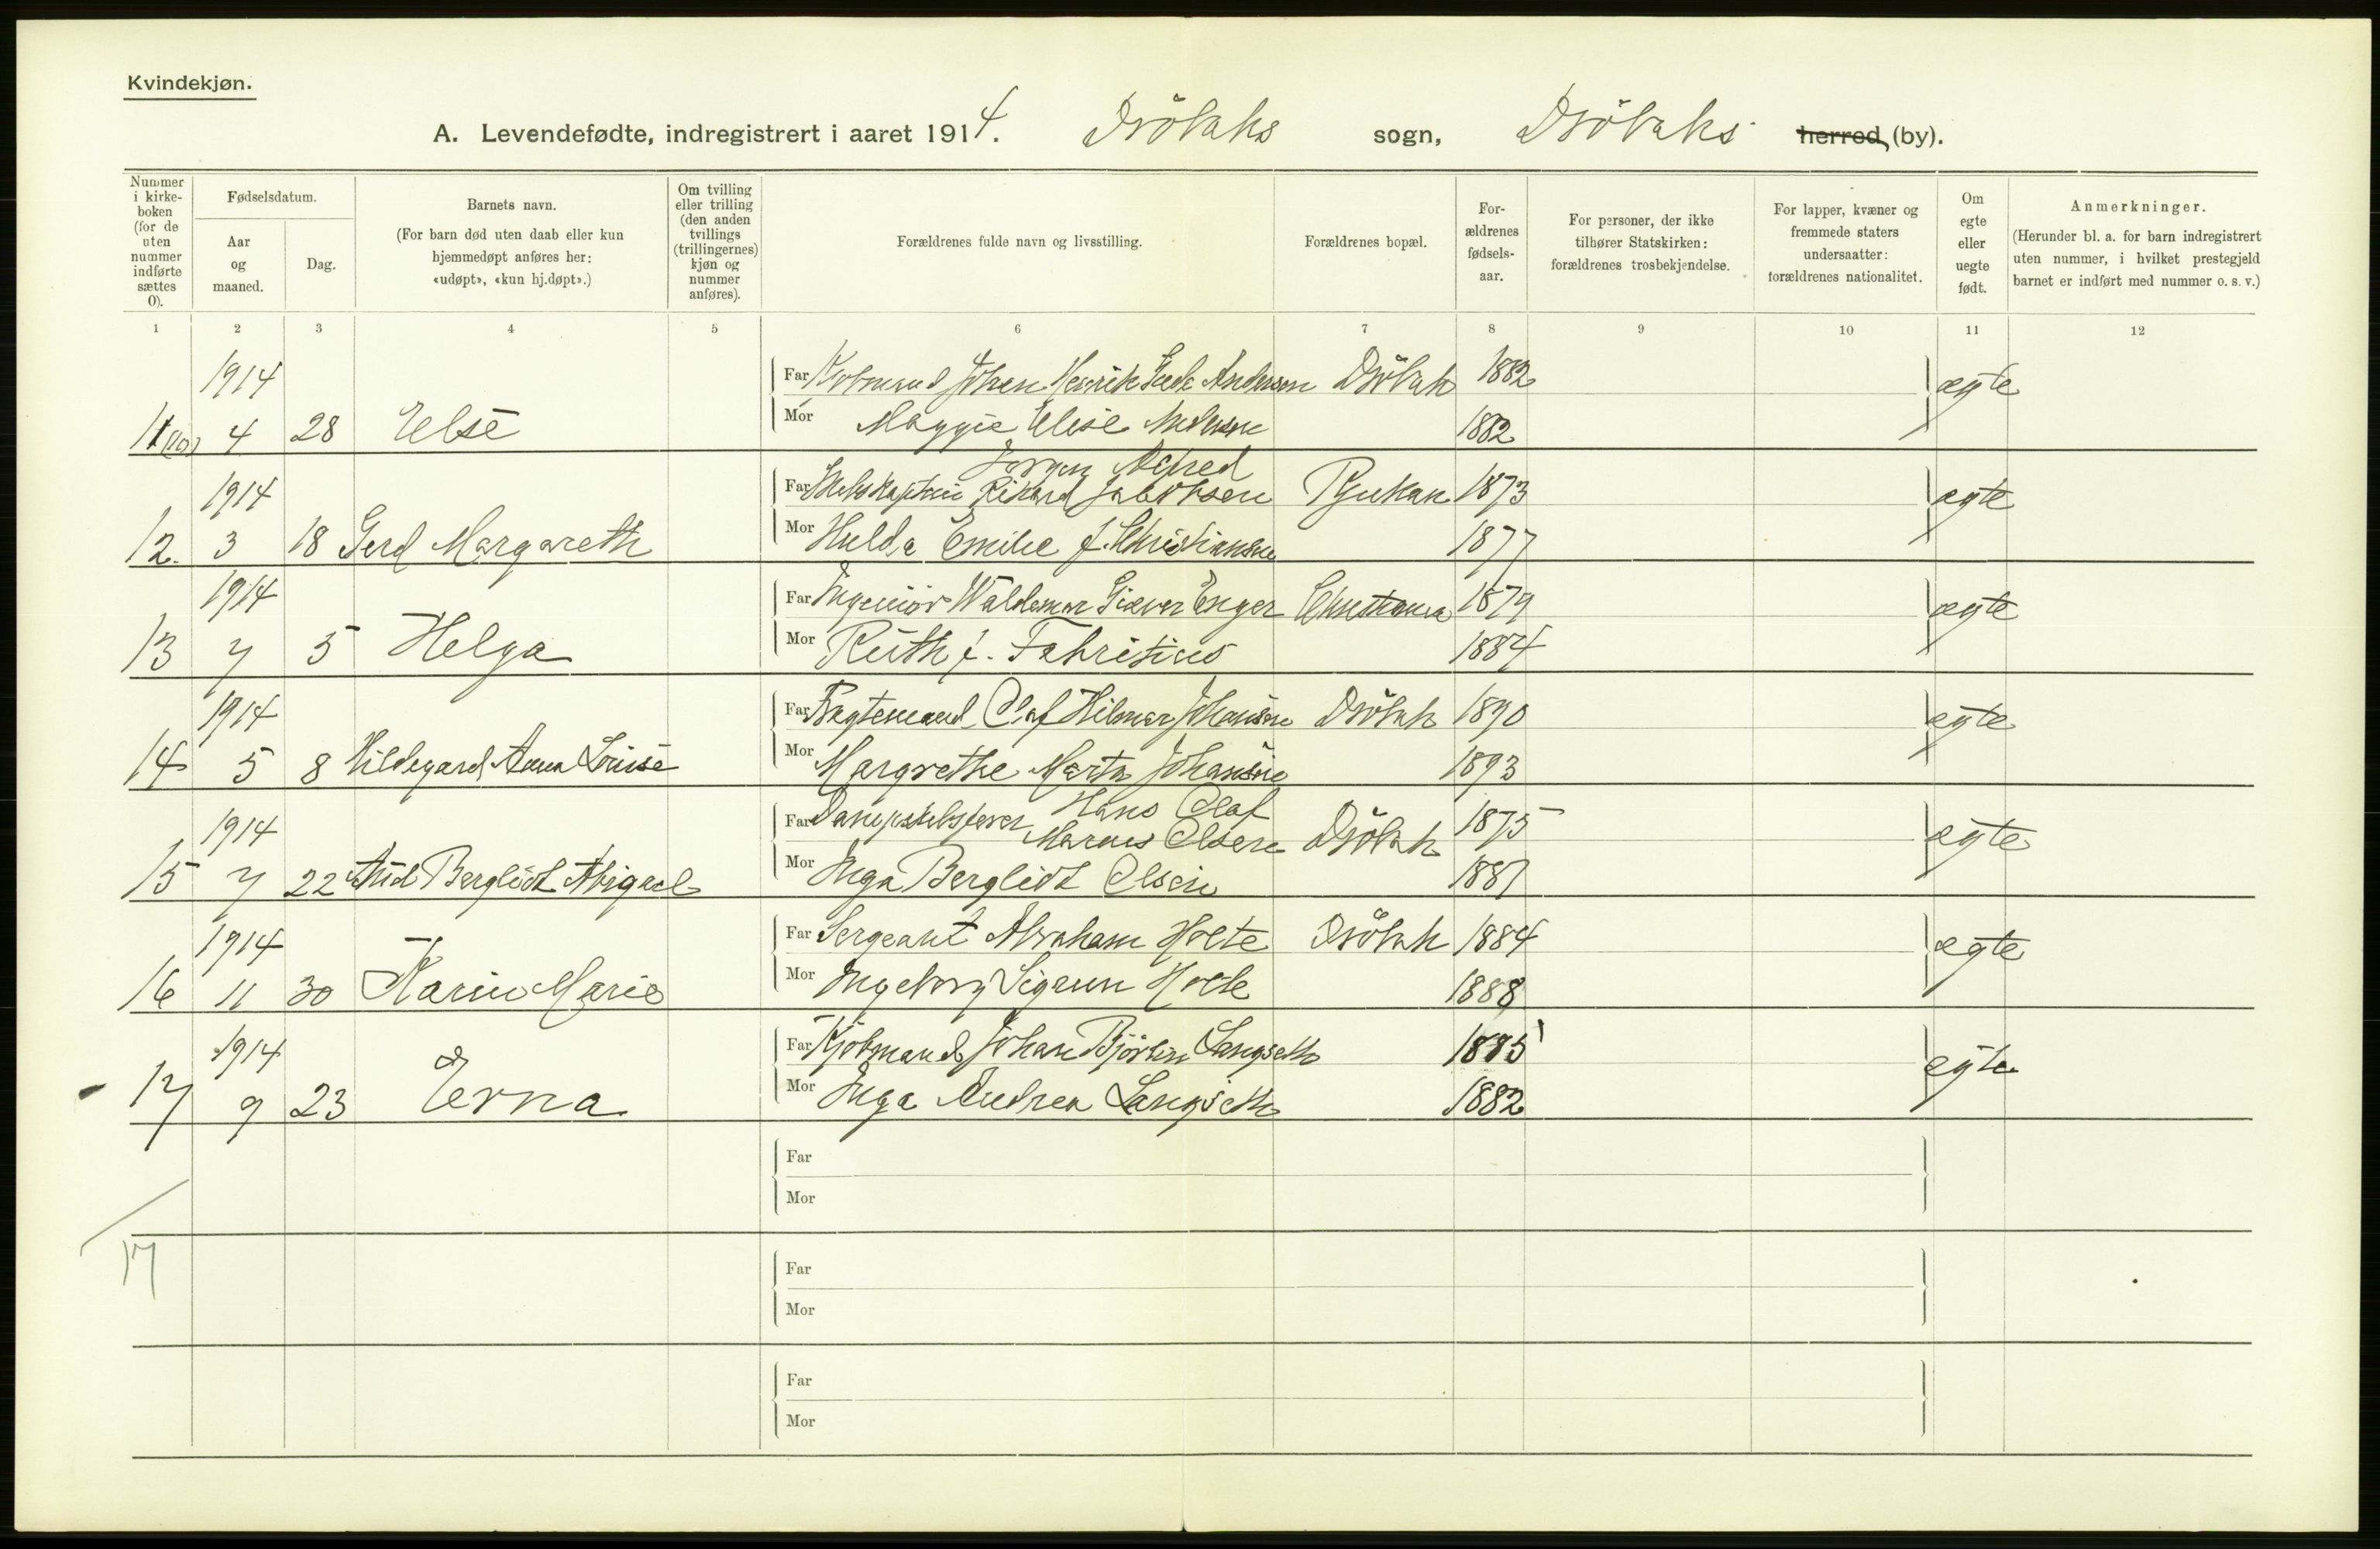 Kvindekjøn.
A. Levendefødte, indregistrert i aaret 1914. Drøbaks sogn, Drøbaks herred (by).
Nummer i kirkeboken (for de uten nummer indførte sættes 0).
Fødselsdatum.
Aar og maaned.
Dag.
Barnets navn.
(For barn død uten daab eller kun hjemmedøpt anføres her: «udøpt», «kun hj.døpt».)
Om tvilling eller trilling (den anden tvillings (trillingernes) kjøn og nummer anføres).
Forældrenes fulde navn og livsstilling.
Forældrenes bopæl.
For-ældrenes fødsels-aar.
For personer, der ikke tilhører Statskirken: forældrenes trosbekjendelse.
For lapper, kvæner og fremmede staters undersaatter: forældrenes nationalitet.
Om egte eller uegte født.
Anmerkninger.
(Herunder bl. a. for barn indregistrert uten nummer, i hvilket prestegjeld barnet er indført med nummer o. s. v.)
1 2 3 4 5 6 7 8 9 10 11 12
1914 Far Johan Henrik Andersen Drøbak 1882 ægte
11 (10) 4 28 Else Mor Maggie Elise Andersen 1882
Jørgen Alfred
1914 Far Rikard Jacobsen Rjukan 1873 egte
12. 3 18 Gerd Margareth Mor Hulda Emilie f. Christiansen 1877
1914 Far Ingeniør Waldemar Siever Enger Christiania 1879 egte
13 7 5 Helga Mor Ruth f. Fabritius 1884
1914 Far Olaf Hilmar Johansen Drøbak 1890 egte
14 5 8 Hildegard Anna Louise Mor Margrethe Marta Johansen 1893
Hans Olaf
1914 Far Marius Olsen Drøbak 1875 egte
15 7 22 Aud Bergliot Abigael Mor Inga Bergliot Olsen 1881
1914 Far Sergeant Abraham Holte Drøbak 1884 egte
16 11 30 Karin Marie Mor Ingeborg Sigrun Holte 1888
1914 Far Kjøbmand Johan Bjørn Langseth 1885 egte
17 9 23 Erna Mor Inga Andrea Langseth 1882
Far
Mor
17
Far
Mor
Far
Mor